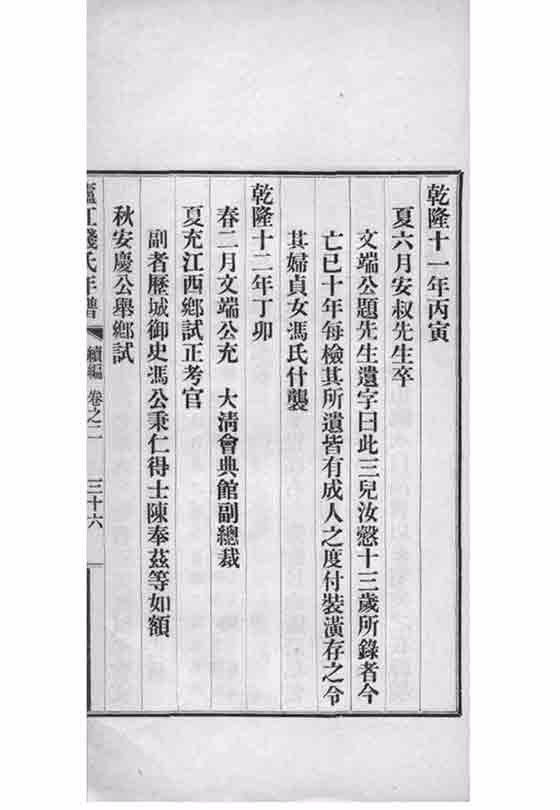 乾隆十一年丙寅
夏六月安叔先生卒
文端公題先生遺字曰此三兒汝愨十三歲所錄者今
亡已十年每檢其所遺皆有成人之度付裝潢存之令
其婦貞女馮氏什襲
乾隆十二年丁卯
春二月文端公充　大清會典館副總裁
夏充江西鄉試正考官
副者歷城御史馮公秉仁得士陳奉茲等如額
秋安慶公舉鄉試
廬江錢氏年譜　續編　卷之二　三十六